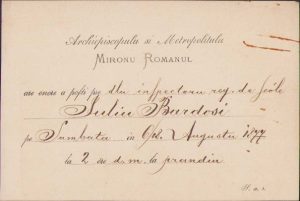 Archiepiscopulu si Metropolitulu
MIRONU ROMANUL
are onore a pofti pe dlu inspectoru reg. de scóle
Juliu Bardosi
pe Sambata in Augustu 1877
la 2 ore d. m. la prandiu